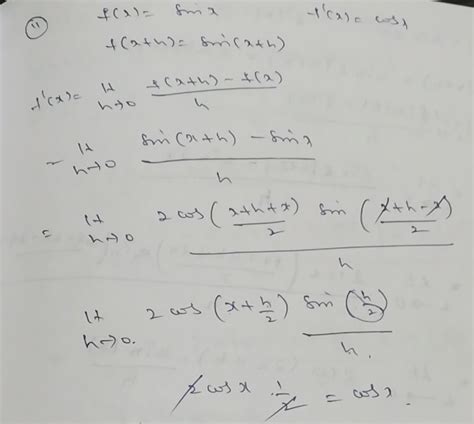 (11) f(x) = sin x f'(x) = cos x
f(x+h) = sin(x+h)
f'(x) = lt h→0 f(x+h) - f(x) / h
= lt h→0 sin(x+h) - sin x / h
= lt h→0 2 cos(x+h+x / 2) sin(x+h-x / 2) / h
lt h→0. 2 cos(x + h/2) sin(h/2) / h.
2 cos x · 1/2 = cos x.